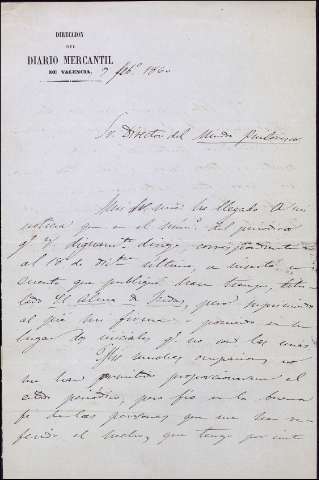 DIRECCION
DEL
DIARIO MERCANTIL
DE VALENCIA.
9 feb.º 1860
Sr. Director del Mundo Pintoresco
Muy Sr. mio: ha llegado á mi
noticia que en el núm.º del periodico
q.e V. dignam.te dirige, correspondiente
al 18 de Dic.bre último, se insertó un
cuento que publiqué hace tiempo, titu-
lado El alma de, pero suprimiendo
al pie mi firma y poniendo en su
lugar dos iniciales q.e no son las mias.
Mis muchas ocupaciones no
me han permitido proporcionarme el
citado periodico, pero fio en la buena
fé de las personas que me han re-
ferido el hecho, que tengo por cierto